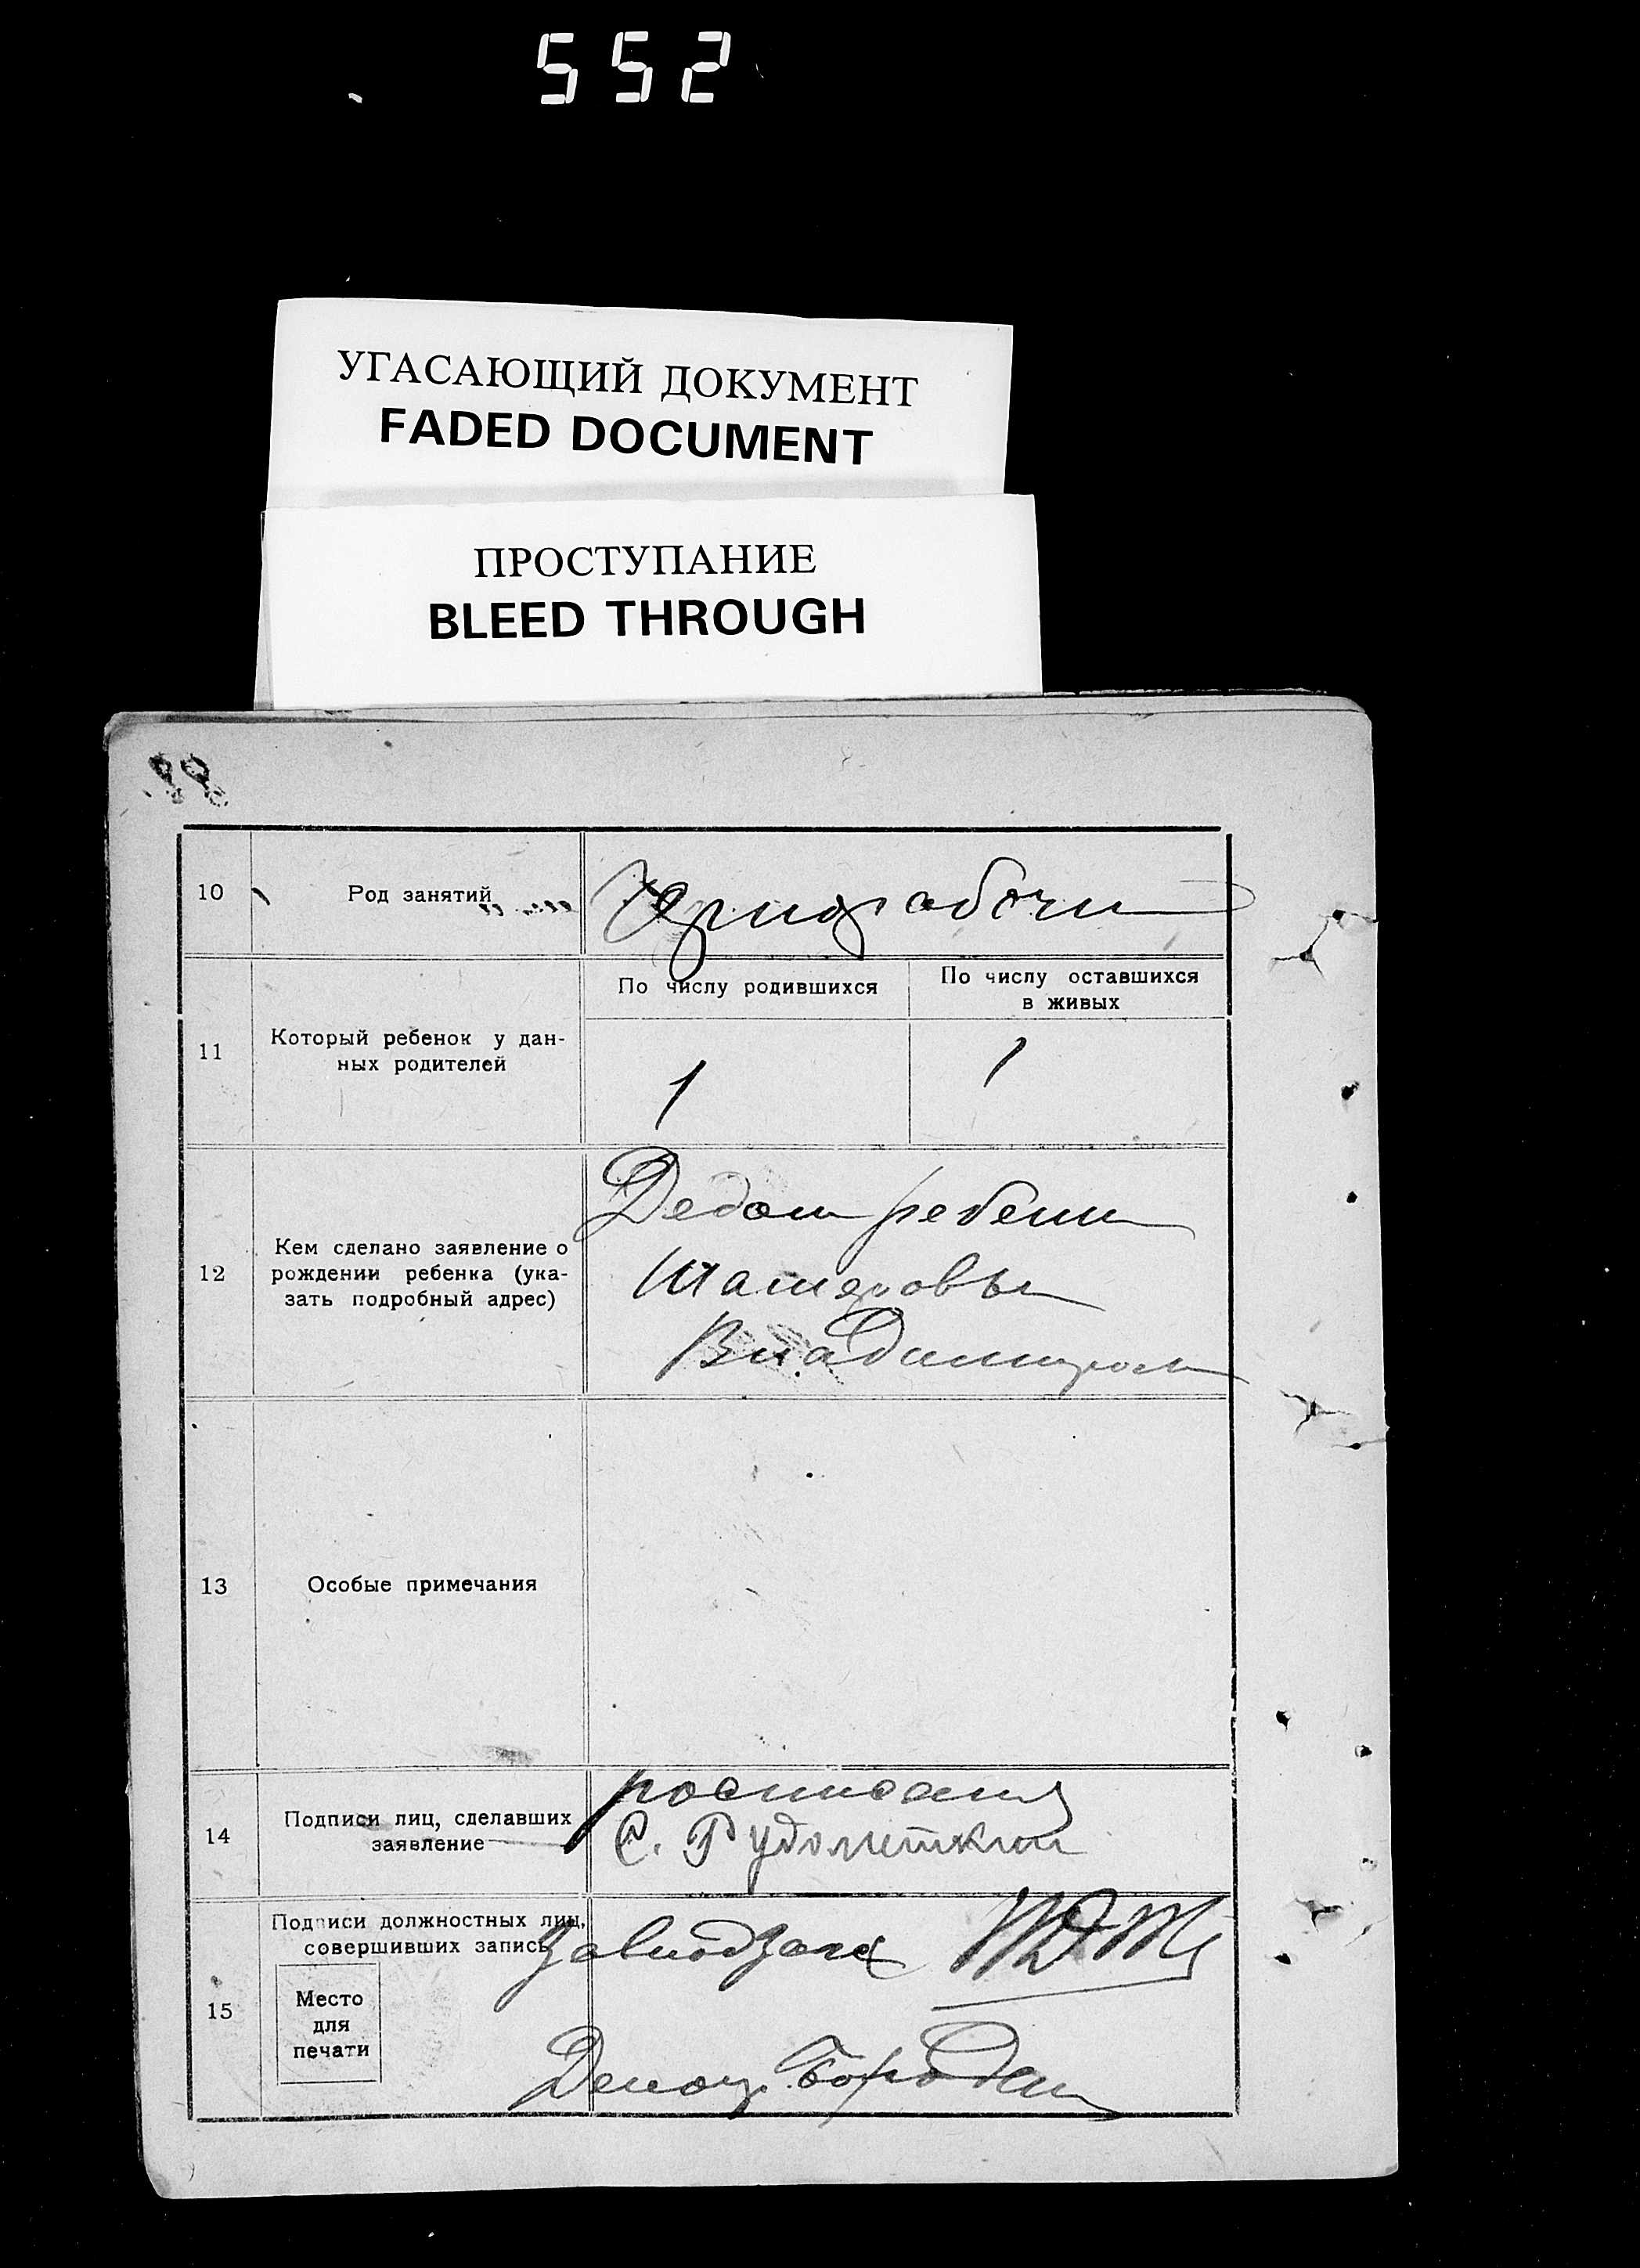 552
УГАСАЮЩИЙ ДОКУМЕНТ
FADED DOCUMENT
ПРОСТУПАНИЕ
BLEED THROUGH
10 Род занятий Чернорабочий
11 Который ребенок у дан-
ных родителей
По числу родившихся
1
По числу оставшихся
в живых
1
12 Кем сделано заявление о
рождении ребенка (ука-
зать подробный адрес)
Дедом ребенка
Владимиром
13 Особые примечания
14 Подписи лиц, сделавших
заявление
С. Рудометкин
15 Подписи должностных лиц,
совершивших запись
Место
для
печати